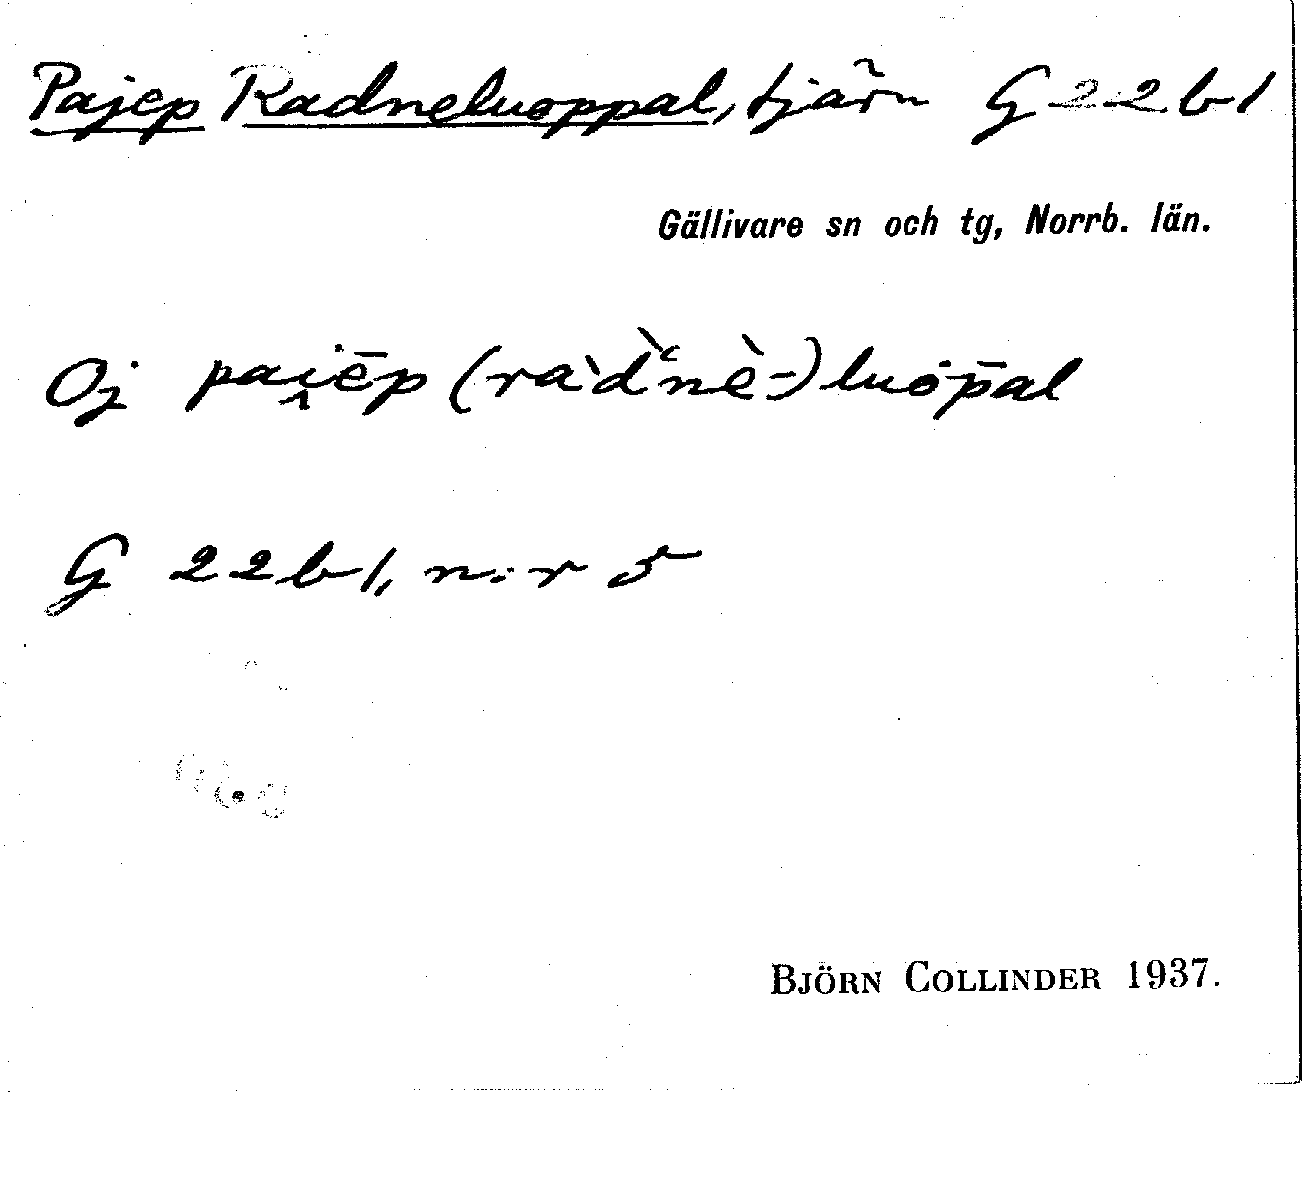 Pajep Radneluoppal, tjärn G 22 b 1
Gällivare sn och tg, Norrb. län.
Oj pai̭ēp (ràd̀ʿnè-) luȯp̄al
G 22 b 1, n:r 5
BJÖRN COLLINDER 1937.